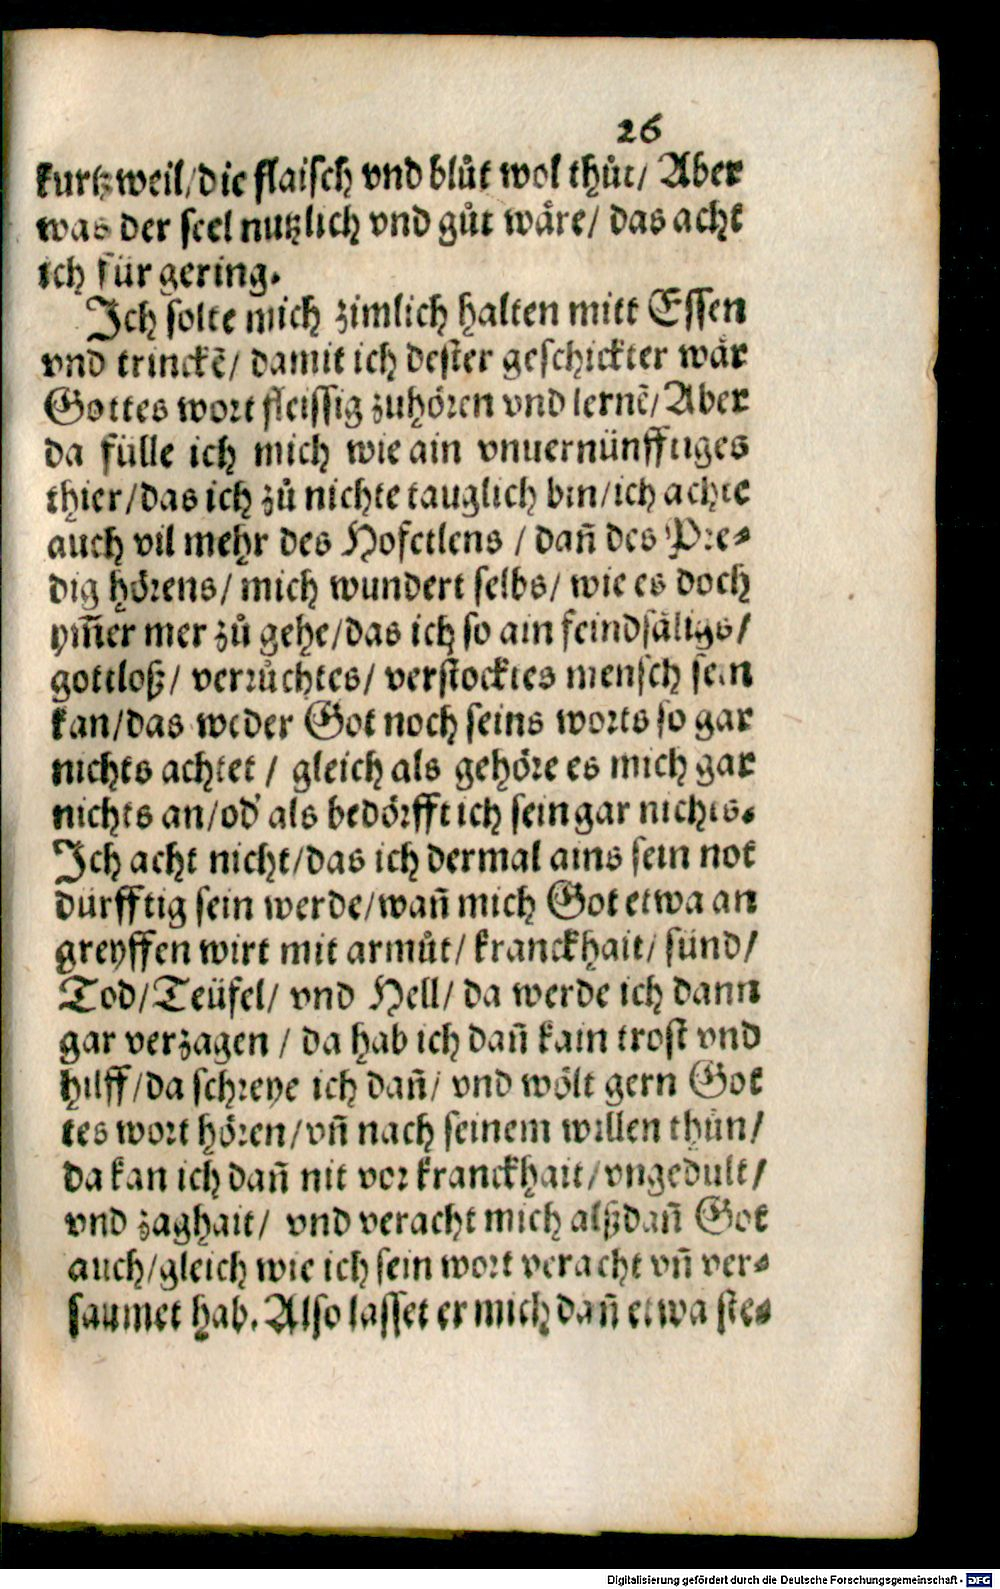 26
kurtzweil/die flaisch vnd blůt wol thůt/ Aber
was der seel nutzlich vnd gůt wäre/ das acht
ich für gering.
Ich solte mich zimlich halten mitt Essen
vnd trinckẽ/ damit ich dester geschickter wär
Gottes wort fleissig zuhören vnd lernẽ/ Aber
da fülle ich mich wie ain vnuernünfftiges
thier/das ich zů nichte tauglich bin/ich achte
auch vil mehr des Hofetlens / dañ des Pre-
dig hörens/ mich wundert selbs/ wie es doch
ym̃er mer zů gehe/das ich so ain feindsäligs/
gottloß/ verrůchtes/ verstocktes mensch sein
kan/das weder Got noch seins worts so gar
nichts achtet / gleich als gehöre es mich gar
nichts an/od' als bedörfft ich sein gar nichts.
Ich acht nicht/das ich dermal ains sein not
dürfftig sein werde/wañ mich Got etwa an
greyffen wirt mit armůt/ kranckhait/ sünd/
Tod/Teüfel/ vnd Hell/ da werde ich dann
gar verzagen / da hab ich dañ kain trost vnd
hilff/da schreye ich dañ/ vnd wölt gern Got
tes wort hören/vñ nach seinem willen thůn/
da kan ich dañ nit vor kranckhait/vngedult/
vnd zaghait/ vnd veracht mich alßdañ Got
auch/gleich wie ich sein wort veracht vñ ver-
saumet hab. Also lasset er mich dañ etwa ste-
Digitalisierung gefördert durch die Deutsche Forschungsgemeinschaft - DFG